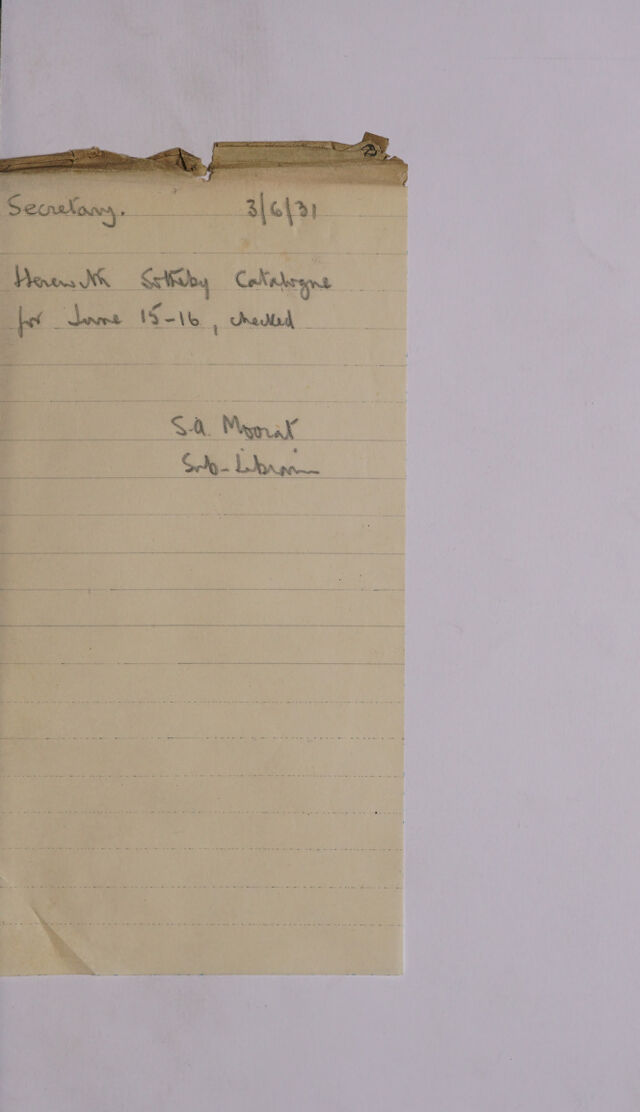 Secretary. 3/6/31
Herewith Sotheby Catalogue
for June 15-16, checked
S.A. Moorat
Sub-Librarian